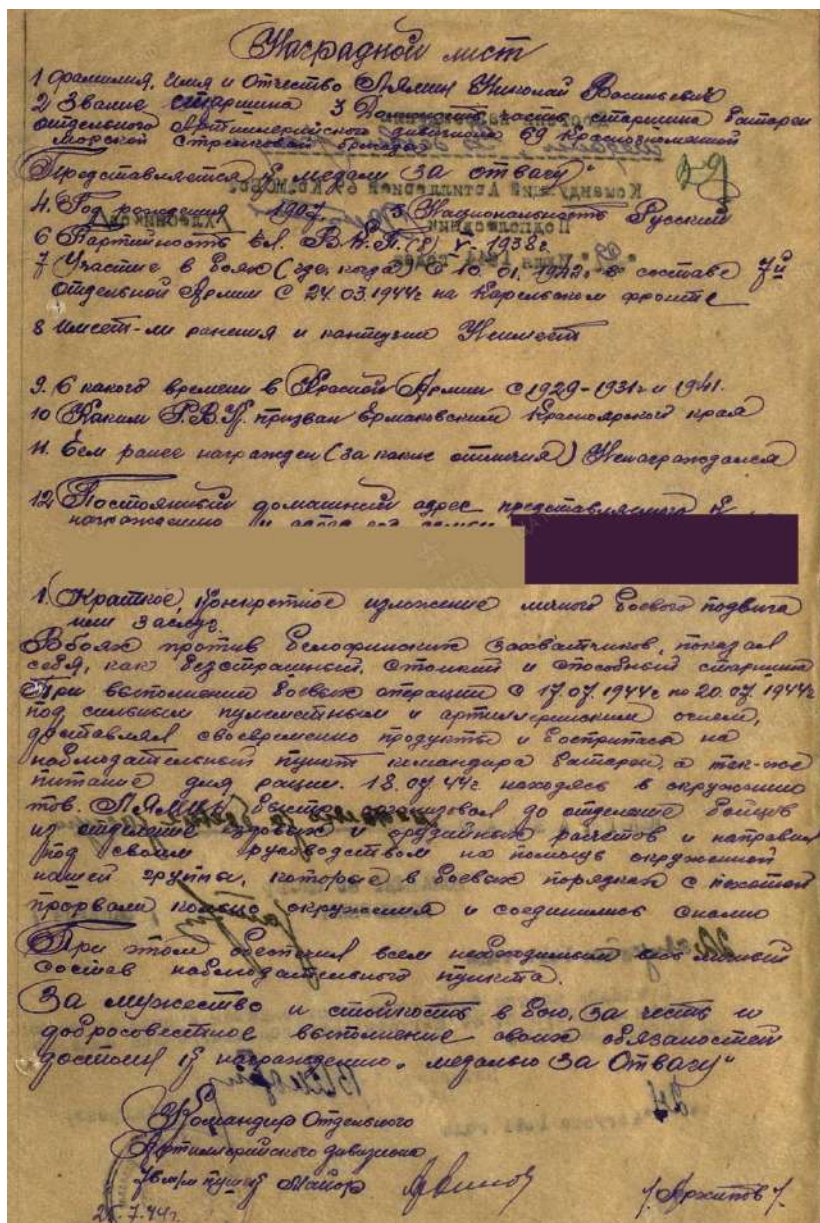 Наградной лист
1 Фамилия, Имя и Отчество Лямин Николай Васильевич
2 Звание старшина 3 Должность, часть старшина батареи
отдельного Артиллерийского дивизиона 69 Краснознаменной
Морской Стрелковой бригады
Представляется к медали "За отвагу"
4. Год рождения 1907 5 Национальность Русский
6 Партийность чл. В.К.П.(б) с 1938г
7 Участие в боях (где, когда) С 10.01.1942г в составе 7й
отдельной Армии С 24.03.1944г на Карельском фронте
8 Имеет-ли ранения и контузии Неимеет
9. С какого времени в Красной Армии с 1929-1931г и 1941.
10 Каким Р.В.К. призван Ермаковским Красноярского края
11. Чем ранее награжден (за какие отличия) Ненаграждался
12 Постоянный домашний адрес представляемого к
награждению и адрес его семьи
1. Краткое, конкретное изложение личного боевого подвига
или заслуг.
В боях против белофинских захватчиков, показал
себя, как безстрашный, стойкий и способный старшина
При выполнении боевых операций с 17.07.1944г по 20.07.1944г
под сильным пулеметным и артиллерийским огнем,
доставлял своевременно продукты и боеприпасы на
наблюдательный пункт командира батареи, а так-же
питание для рации. 18.07.44г. находясь в окружении
тов. ЛЯМИН быстро организовал до отделения бойцов
из отделения ездовых и орудийных расчетов и направил
под своим руководством на помощь окруженной
нашей группы, которые в боевых порядках с пехотой
прорвали кольцо окружения и соединились
При этом обеспечил всем необходимым весь личный
состав наблюдательного пункта.
За мужество и стойкость в бою, за честь и
добросовестное выполнение своих обязаностей
достоин к награждению. медалью За Отвагу"
24
Командир Отдельного
Артиллерийского дивизиона
76 м/м пушек Майор
/Архипов/.
25.7.44г.